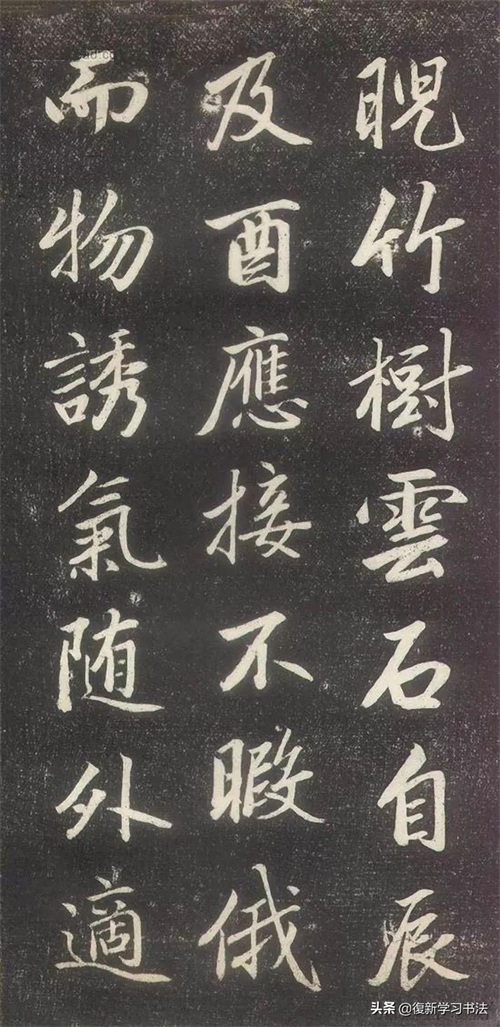 睨竹樹雲石自辰
及酉應接不暇俄
而物誘氣随外適
头条 @復新学习书法